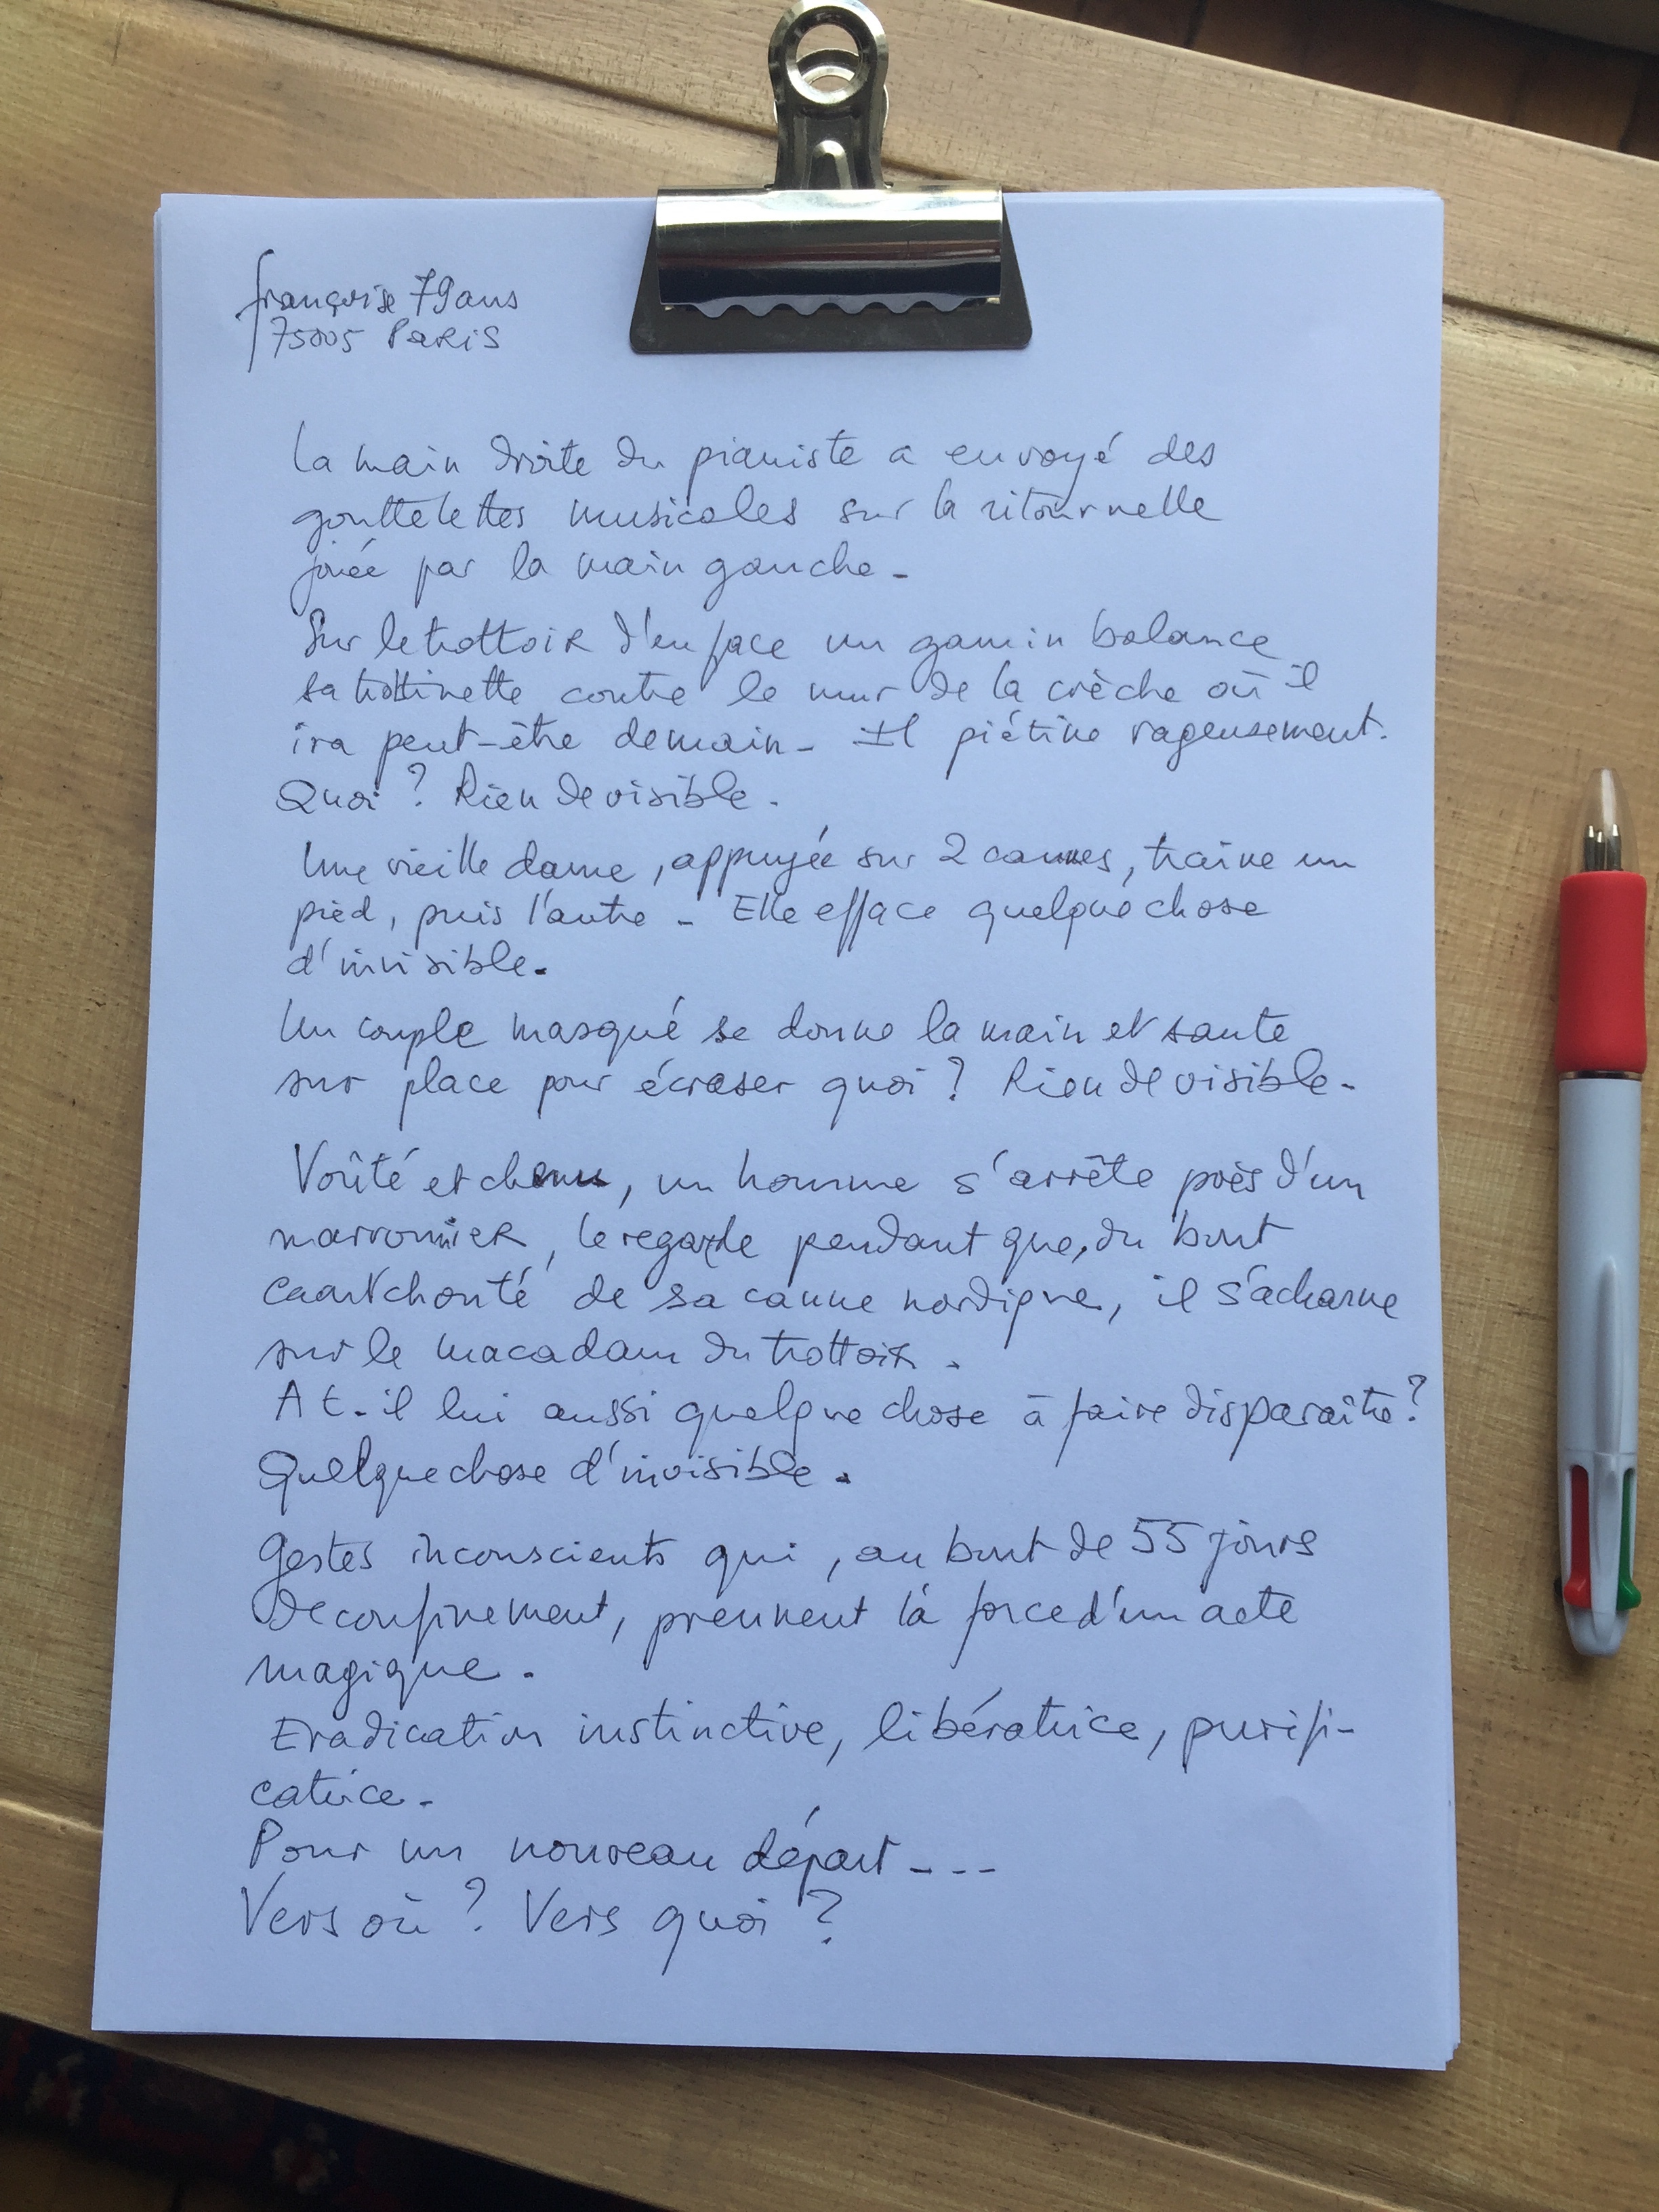 françoise 79ans
75005 PARIS
La main droite du pianiste a envoyé des
gouttelettes musicales sur la ritournelle
jouée par la main gauche -
Sur le trottoir d'en face un gamin balance
sa trottinette contre le mur de la crèche où il
ira peut-être demain - Il piétine rageusement.
Quoi ? Rien de visible.
Une vieille dame, appuyée sur 2 cannes, traine un
pied, puis l'autre - Elle efface quelque chose
d'invisible.
Un couple masqué se donne la main et saute
sur place pour écraser quoi ? Rien de visible -
Voûté et chenu, un homme s'arrête près d'un
marronnier, le regarde pendant que, du bout
caoutchouté de sa canne nordique, il s'acharne
sur le macadam du trottoir.
A t-il lui aussi quelque chose à faire disparaître ?
Quelque chose d'invisible.
Gestes inconscients qui, au bout de 55 jours
de confinement, prennent la force d'un acte
magique.
Eradication instinctive, libératrice, purifi-
catrice -
Pour un nouveau départ ---
Vers où ? Vers quoi ?